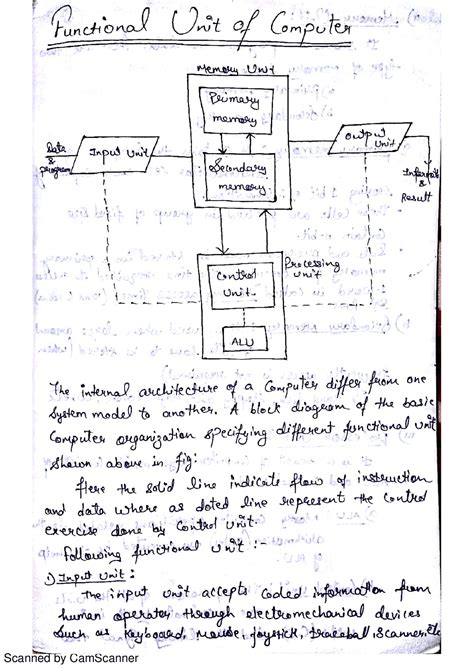 Functional Unit of Computer
Memory Unit
Primary
memory
Data
&
program
Input Unit
Output
Unit
Secondary
memory
&
Result
Control
Unit
Processing
unit
ALU
The internal architecture of a Computer differ from one
System model to another. A block diagram of the basic
Computer organization specifying different functional unit
shown above in fig:
Here the solid line indicate flow of instruction
and data where as doted line represent the control
exercise done by Control Unit.
Following functional Unit :-
i) Input Unit :
The input Unit accepts Coded information from
human operator through electromechanical devices
such as Keyboard, mouse, joystick, traceball, scanner, Etc
Scanned by CamScanner